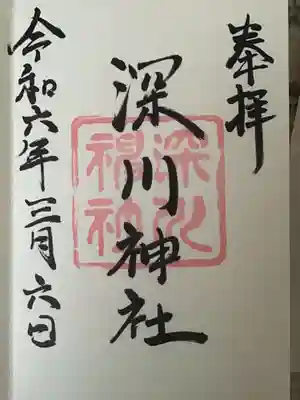 奉拝
深川神社
深川神社
令和六年三月六日